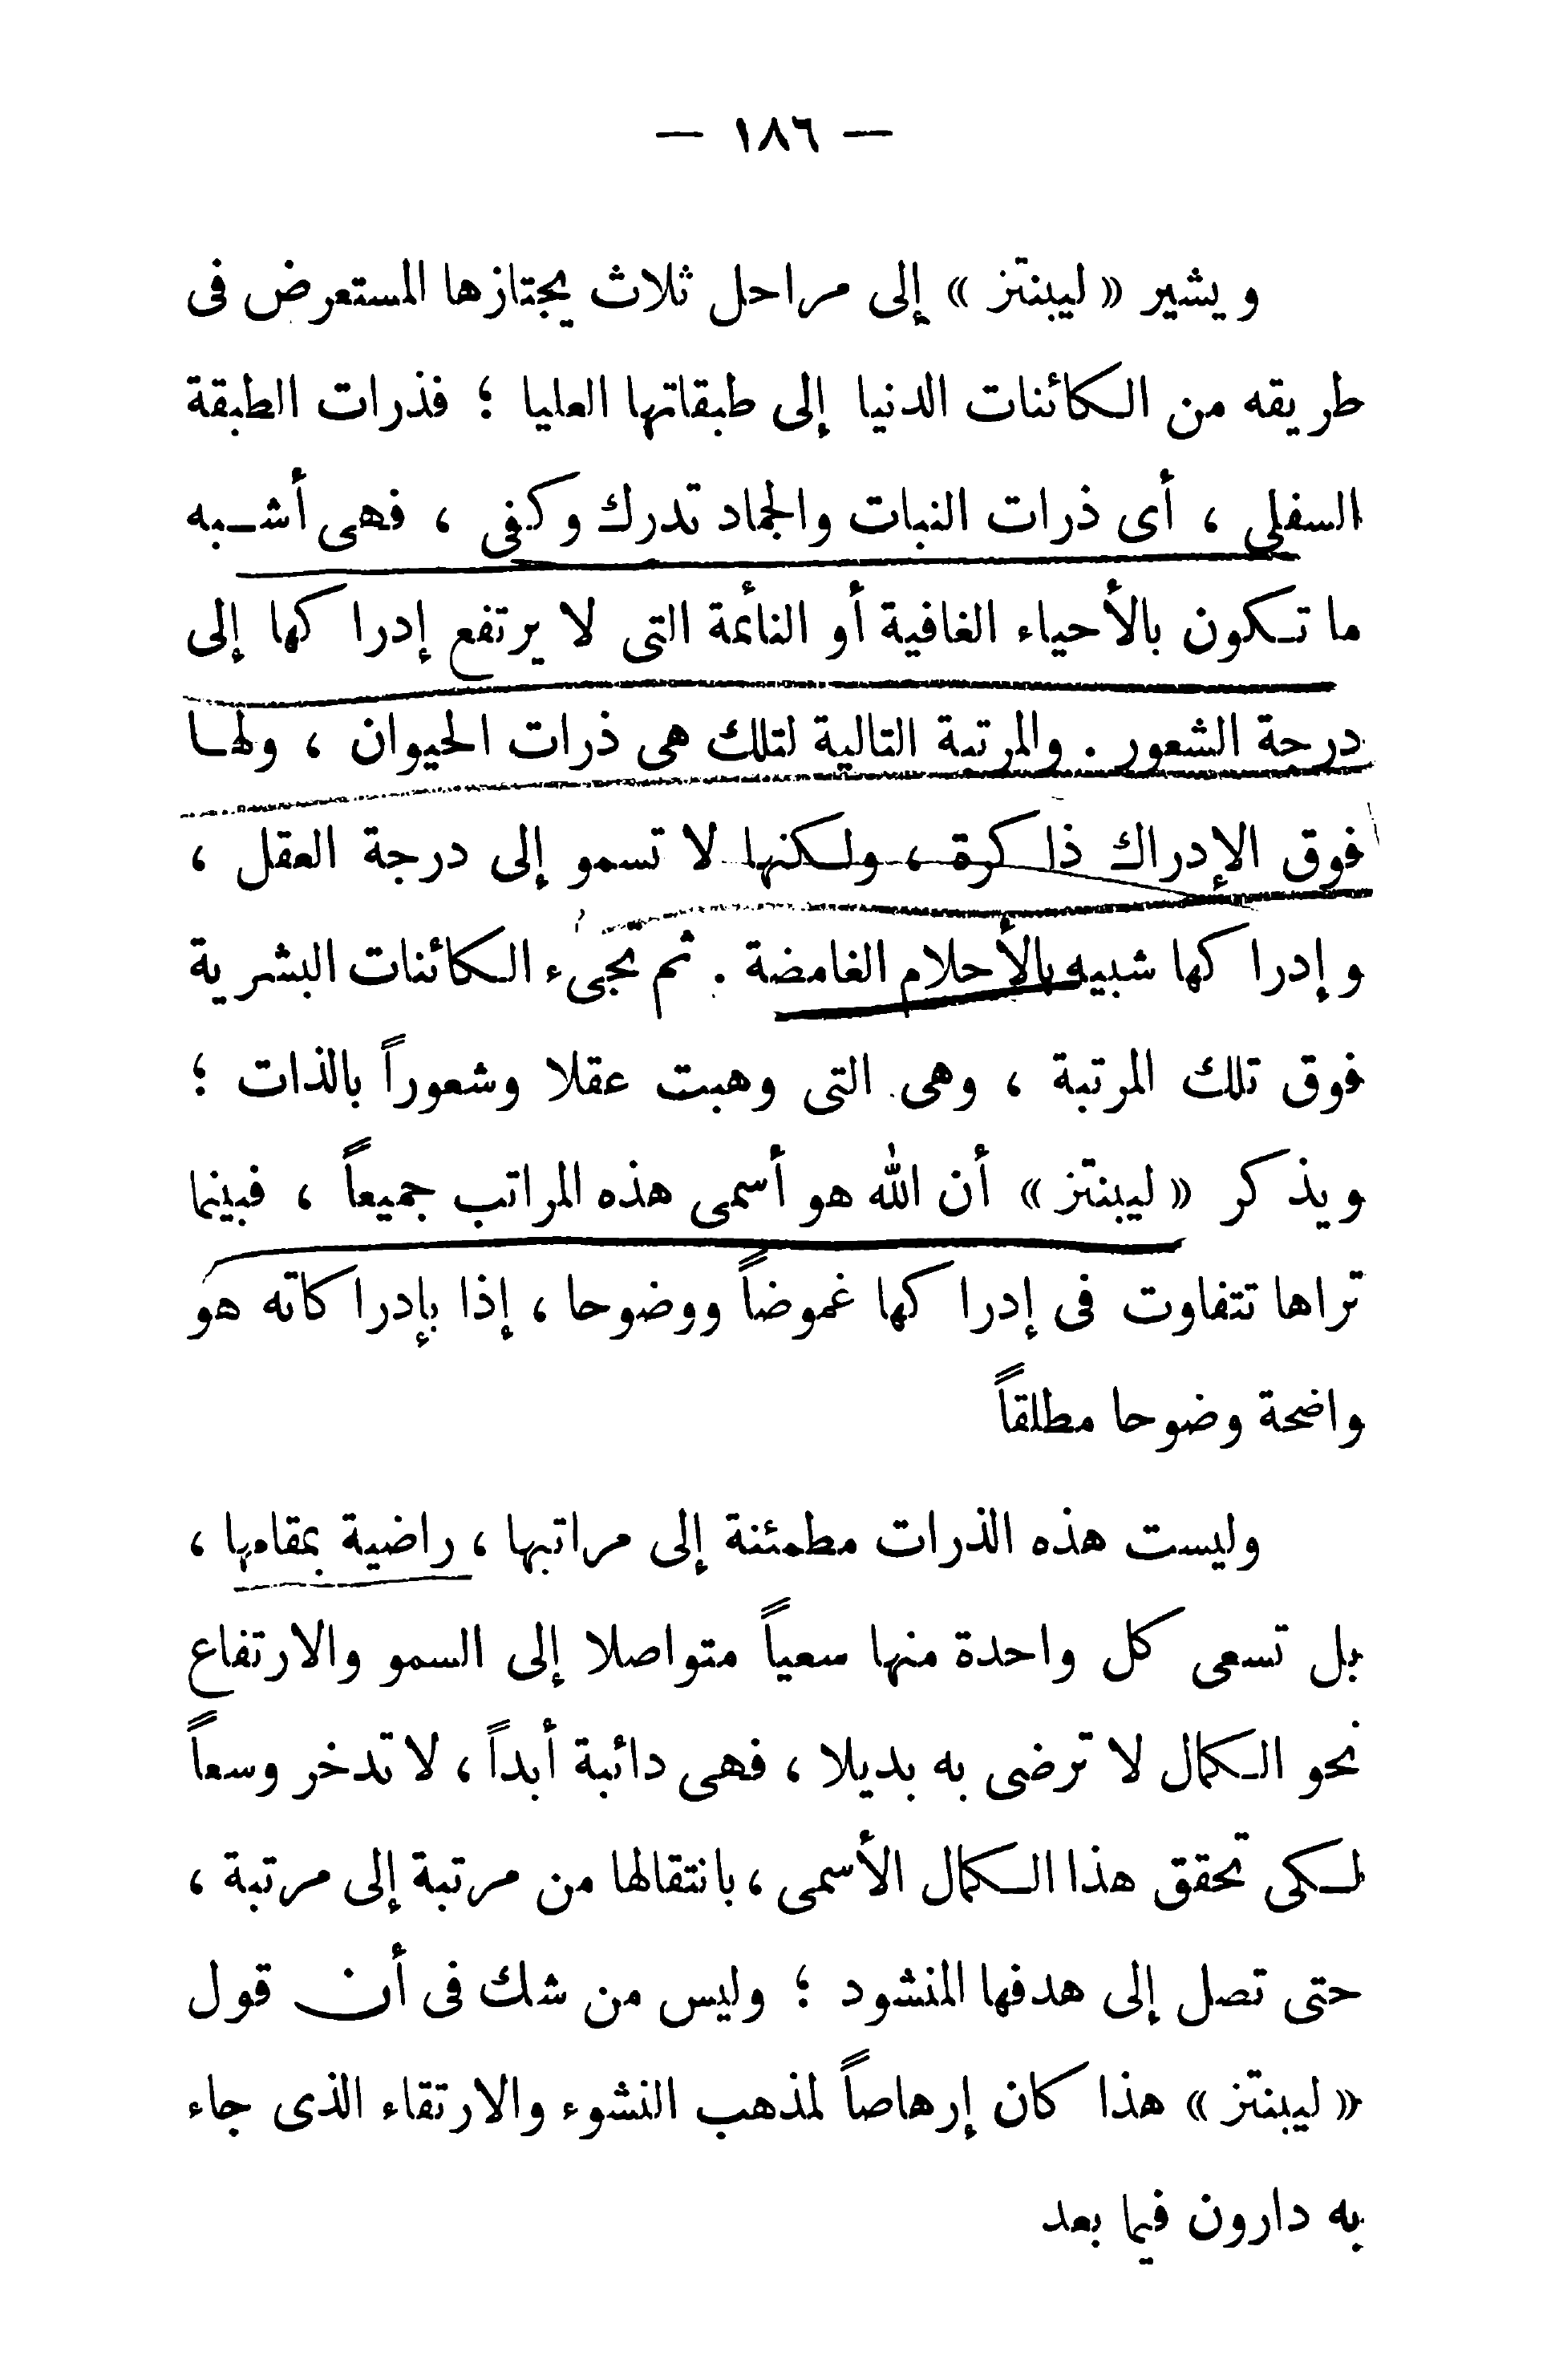 — ١٨٦ —
ويشير « ليبنتز » إلى مراحل ثلاث يجتازها المستعرض فى
طريقه من الكائنات الدنيا إلى طبقاتها العليا ؛ فذرات الطبقة
السفلى ، أى ذرات النبات والجماد تدرك وكفى ، فهى أشبه
ما تكون بالأحياء الغافية أو النائمة التى لا يرتفع إدراكها إلى
درجة الشعور . والمرتبة التالية لتلك هى ذرات الحيوان ، ولها
فوق الإدراك ذاكرة ، ولكنها لا تسمو إلى درجة العقل ،
وإدراكها شبيه بالأحلام الغامضة . ثم تجىء الكائنات البشرية
فوق تلك المرتبة ، وهى التى وهبت عقلا وشعوراً بالذات ؛
ويذكر « ليبنتز » أن الله هو أسمى هذه المراتب جميعاً ، فبينما
تراها تتفاوت فى إدراكها غموضاً ووضوحا ، إذا بإدراكاته هو
واضحة وضوحا مطلقاً
وليست هذه الذرات مطمئنة إلى مراتبها ، راضية بمقامها ،
بل تسعى كل واحدة منها سعياً متواصلا إلى السمو والارتفاع
نحو الكمال لا ترضى به بديلا ، فهى دائبة أبداً ، لا تدخر وسعاً
لكى تحقق هذا الكمال الأسمى ، بانتقالها من مرتبة إلى مرتبة ،
حتى تصل إلى هدفها المنشود ؛ وليس من شك فى أن قول
« ليبنتز » هذا كان إرهاصاً لمذهب النشوء والارتقاء الذى جاء
به دارون فيما بعد